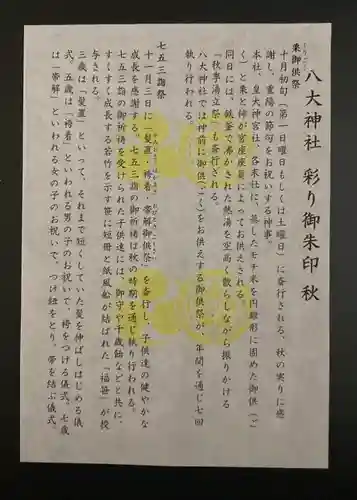 八大神社 彩り御朱印 秋
栗御供祭
十月初旬（第一日曜日もしくは土曜日）に斎行される、秋の実りに感
謝し、重陽の節句をお祝いする神事。
本社、皇大神宮社、各末社に、蒸したモチ米を円錐形に固めた御供（ご
く）と栗と柿が宮座座員によってお供えされる。
同日には、鉄釜で沸かされた熱湯を空高く散らしながら振りかける
「秋季湯立祭」も斎行される。
八大神社では神前に御供（ごく）をお供えする御供祭が、年間を通じ七回
執り行われる。
七五三詣祭
十一月三日に「髪置・袴着・帯解御供祭」を斎行し、子供達の健やかな
成長を感謝する。七五三詣の御祈祷は秋の時期を通じ執り行われる。
七五三詣の御祈祷を受けられた子供達には、御守や千歳飴などと共に、
すくすく成長する若竹を示す笹に短冊と紙風船が結ばれた「福笹」が授
与される。
三歳は「髪置」といって、それまで短くしていた髪を伸ばしはじめる儀
式。五歳は「袴着」といわれる男の子のお祝いで、袴をつける儀式。七歳
は「帯解」といわれる女の子のお祝いで、つけ紐をとり、帯を結ぶ儀式。